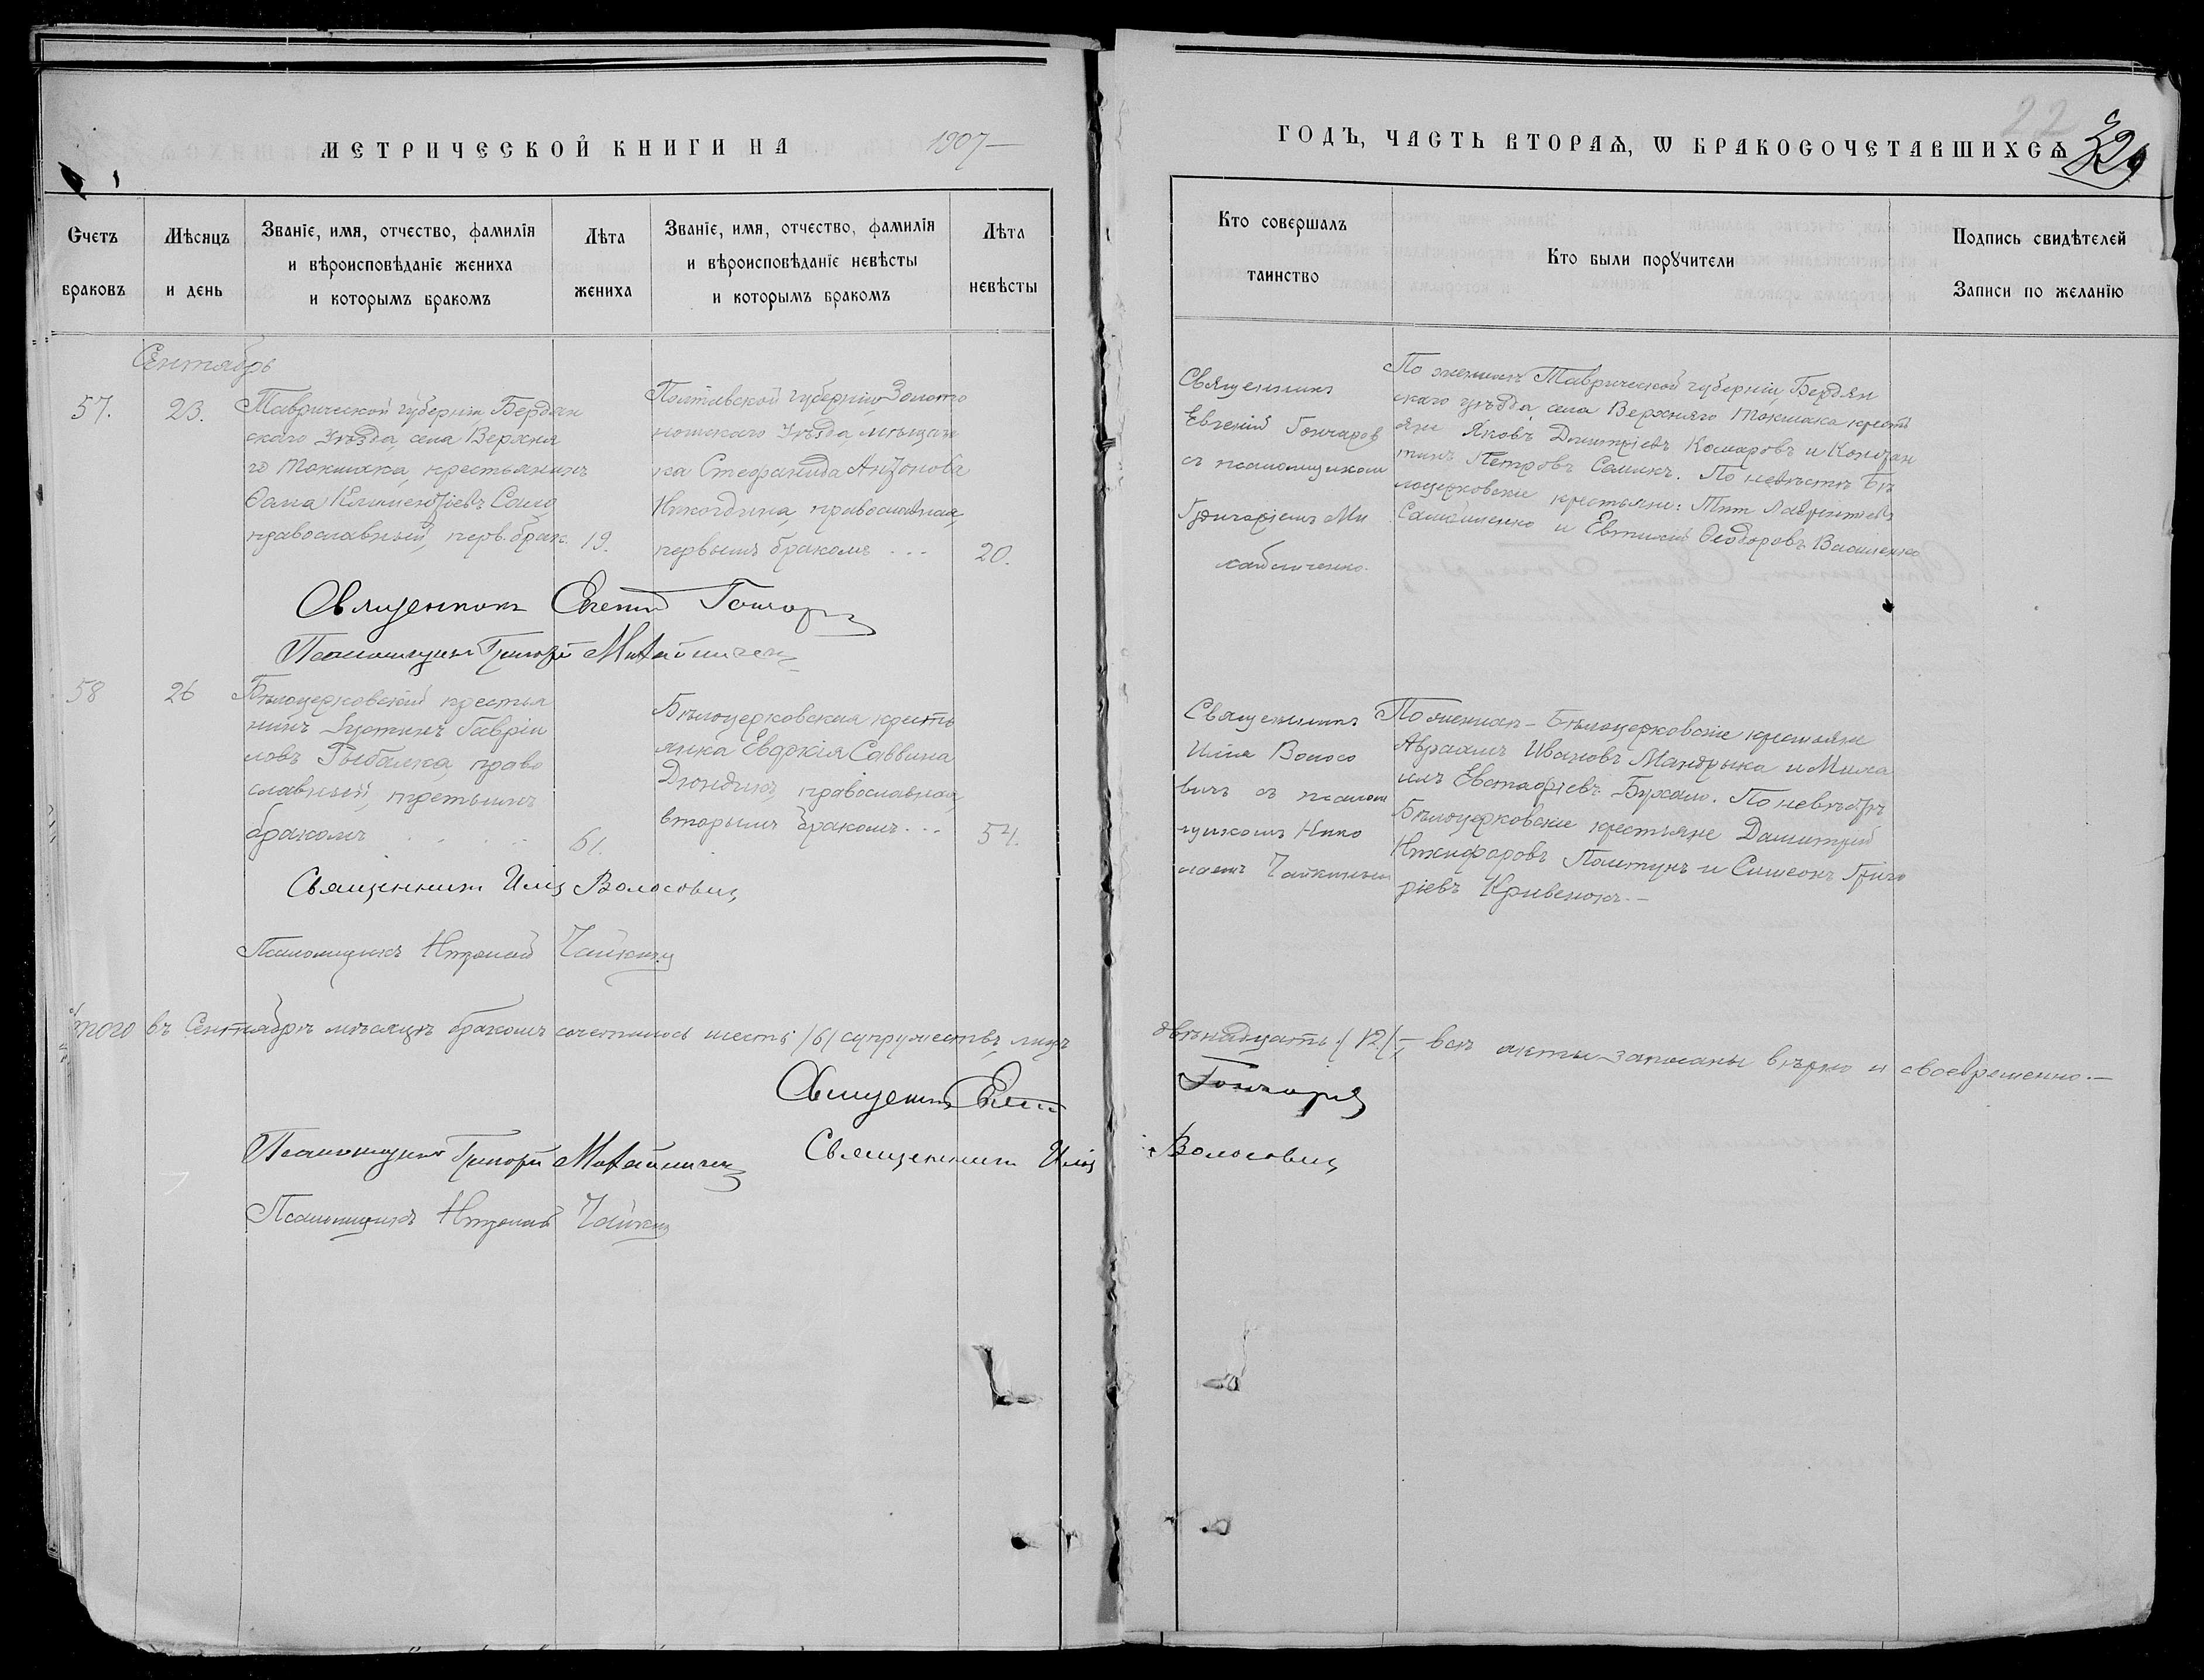 МЕТРИЧЕСКОЙ КНИГИ НА 1907
ГОДЪ, ЧАСТЬ ВТОРАѦ, Ѡ БРАКОСОЧЕТАВШИХСѦ
22
Счетъ браковъ
Мѣсяцъ и день
Званіе, имя, отчество, фамилія
и вѣроисповѣданіе жениха
и которымъ бракомъ
Лѣта жениха
Званіе, имя, отчество, фамилія
и вѣроисповѣданіе невѣсты
и которымъ бракомъ
Лѣта невѣсты
Кто совершалъ
таинство
Кто были порꙋчители
Подпись свидѣтелей
Записи по желанію
Сентябрь
57.
23.
Таврической губерніи, Бердян
скаго уѣзда, села Верхня
го Токмака, крестьянинъ
Ѳома Климентіевъ Само
православный, перв. брак.
19.
Полтавской губерніи Золото
ношскаго уѣзда мѣщан
ка Стефанида Антонова
православная,
первымъ бракомъ ...
20.
Священникъ
Евгений Гончаровъ
съ псаломщикомъ
Григоріемъ Ми
хайличенко.
По женихѣ Таврической губерніи, Бердян
скаго уѣзда, села Верхняго Токмака кресть
яне Яковъ Димитріевъ Комаровъ и Констан
тинъ Петровъ Саминъ. По невѣстѣ Бѣ
лоцерковскіе крестьяне: Тит Лаврентіевъ
Самойленко и Евтихій Ѳеодоровъ Василенко
Священникъ Евгений Гончаровъ
Псаломщикъ Григорій Михайличенко
58
26
Бѣлоцерковскій крестья
нинъ Іустинъ Гавріи
ловъ Рыбалка, право
славный, третьимъ
бракомъ . . . .
61.
Бѣлоцерковская кресть
янка Евдокія Саввина
Дюндикъ, православная,
вторымъ бракомъ ...
54.
Священникъ
Илія Волосо
вичъ съ псалом
щикомъ Нико
лаемъ Чайкинымъ
По женихѣ - Бѣлоцерковскіе крестьяне
Авраамъ Ивановъ Мандрыка и Миха
илъ Евстафіевъ Бухало. По невѣстѣ
Бѣлоцерковскіе крестьяне Димитрий
Никифоровъ Полтунъ и Симеонъ Григо
ріевъ Кривенокъ.-
Священникъ Илія Волосовичъ
Псаломщикъ Николай Чайкинъ
Итого въ Сентябрѣ мѣсяцѣ бракомъ сочеталось шесть /6/ супружествъ, лицъ двѣнадцать /12/, всѣ акты записаны вѣрно и своевременно.-
Священникъ Евгений Гончаровъ
Псаломщикъ Григорій Михайличенко Священникъ Илія Волосовичъ
Псаломщикъ Николай Чайкинъ